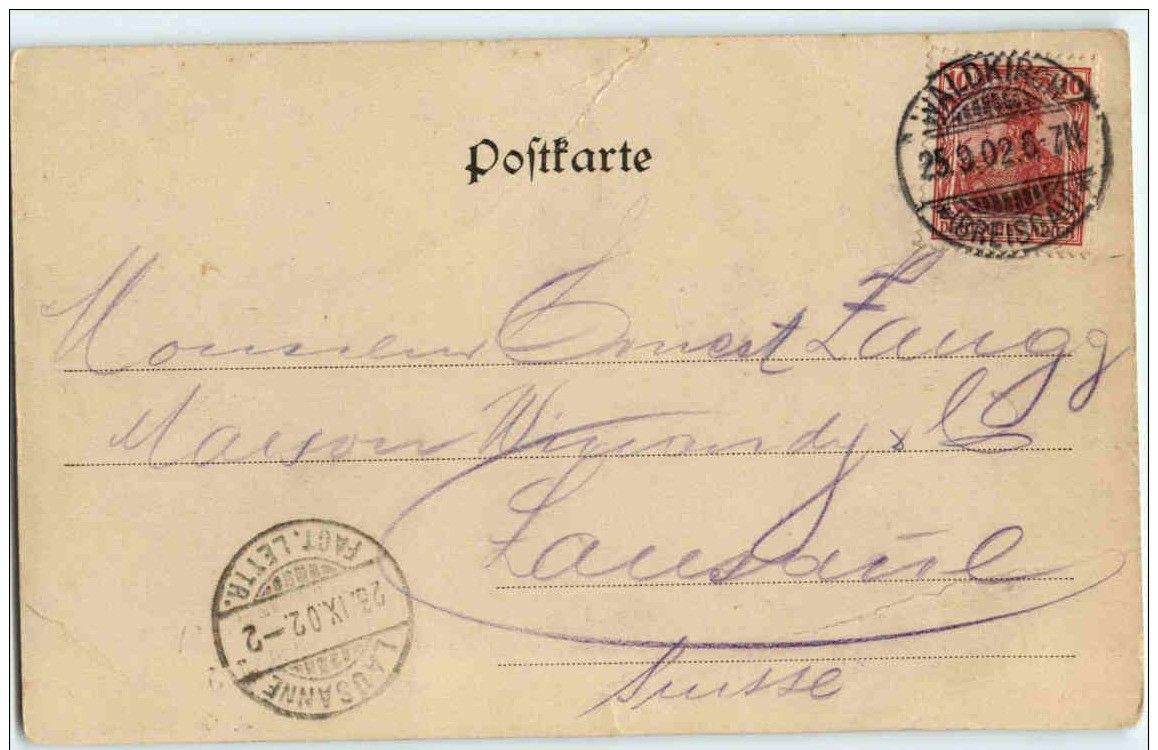 Postkarte
10 10
WALDKIRCH
25.9.02.6-7N.
(BREISGAU)
Monsieur Ernest Zaugg
Maison &
Lausanne
Suisse
LAUSANNE
IX.02.-2
FACT. LETTR.